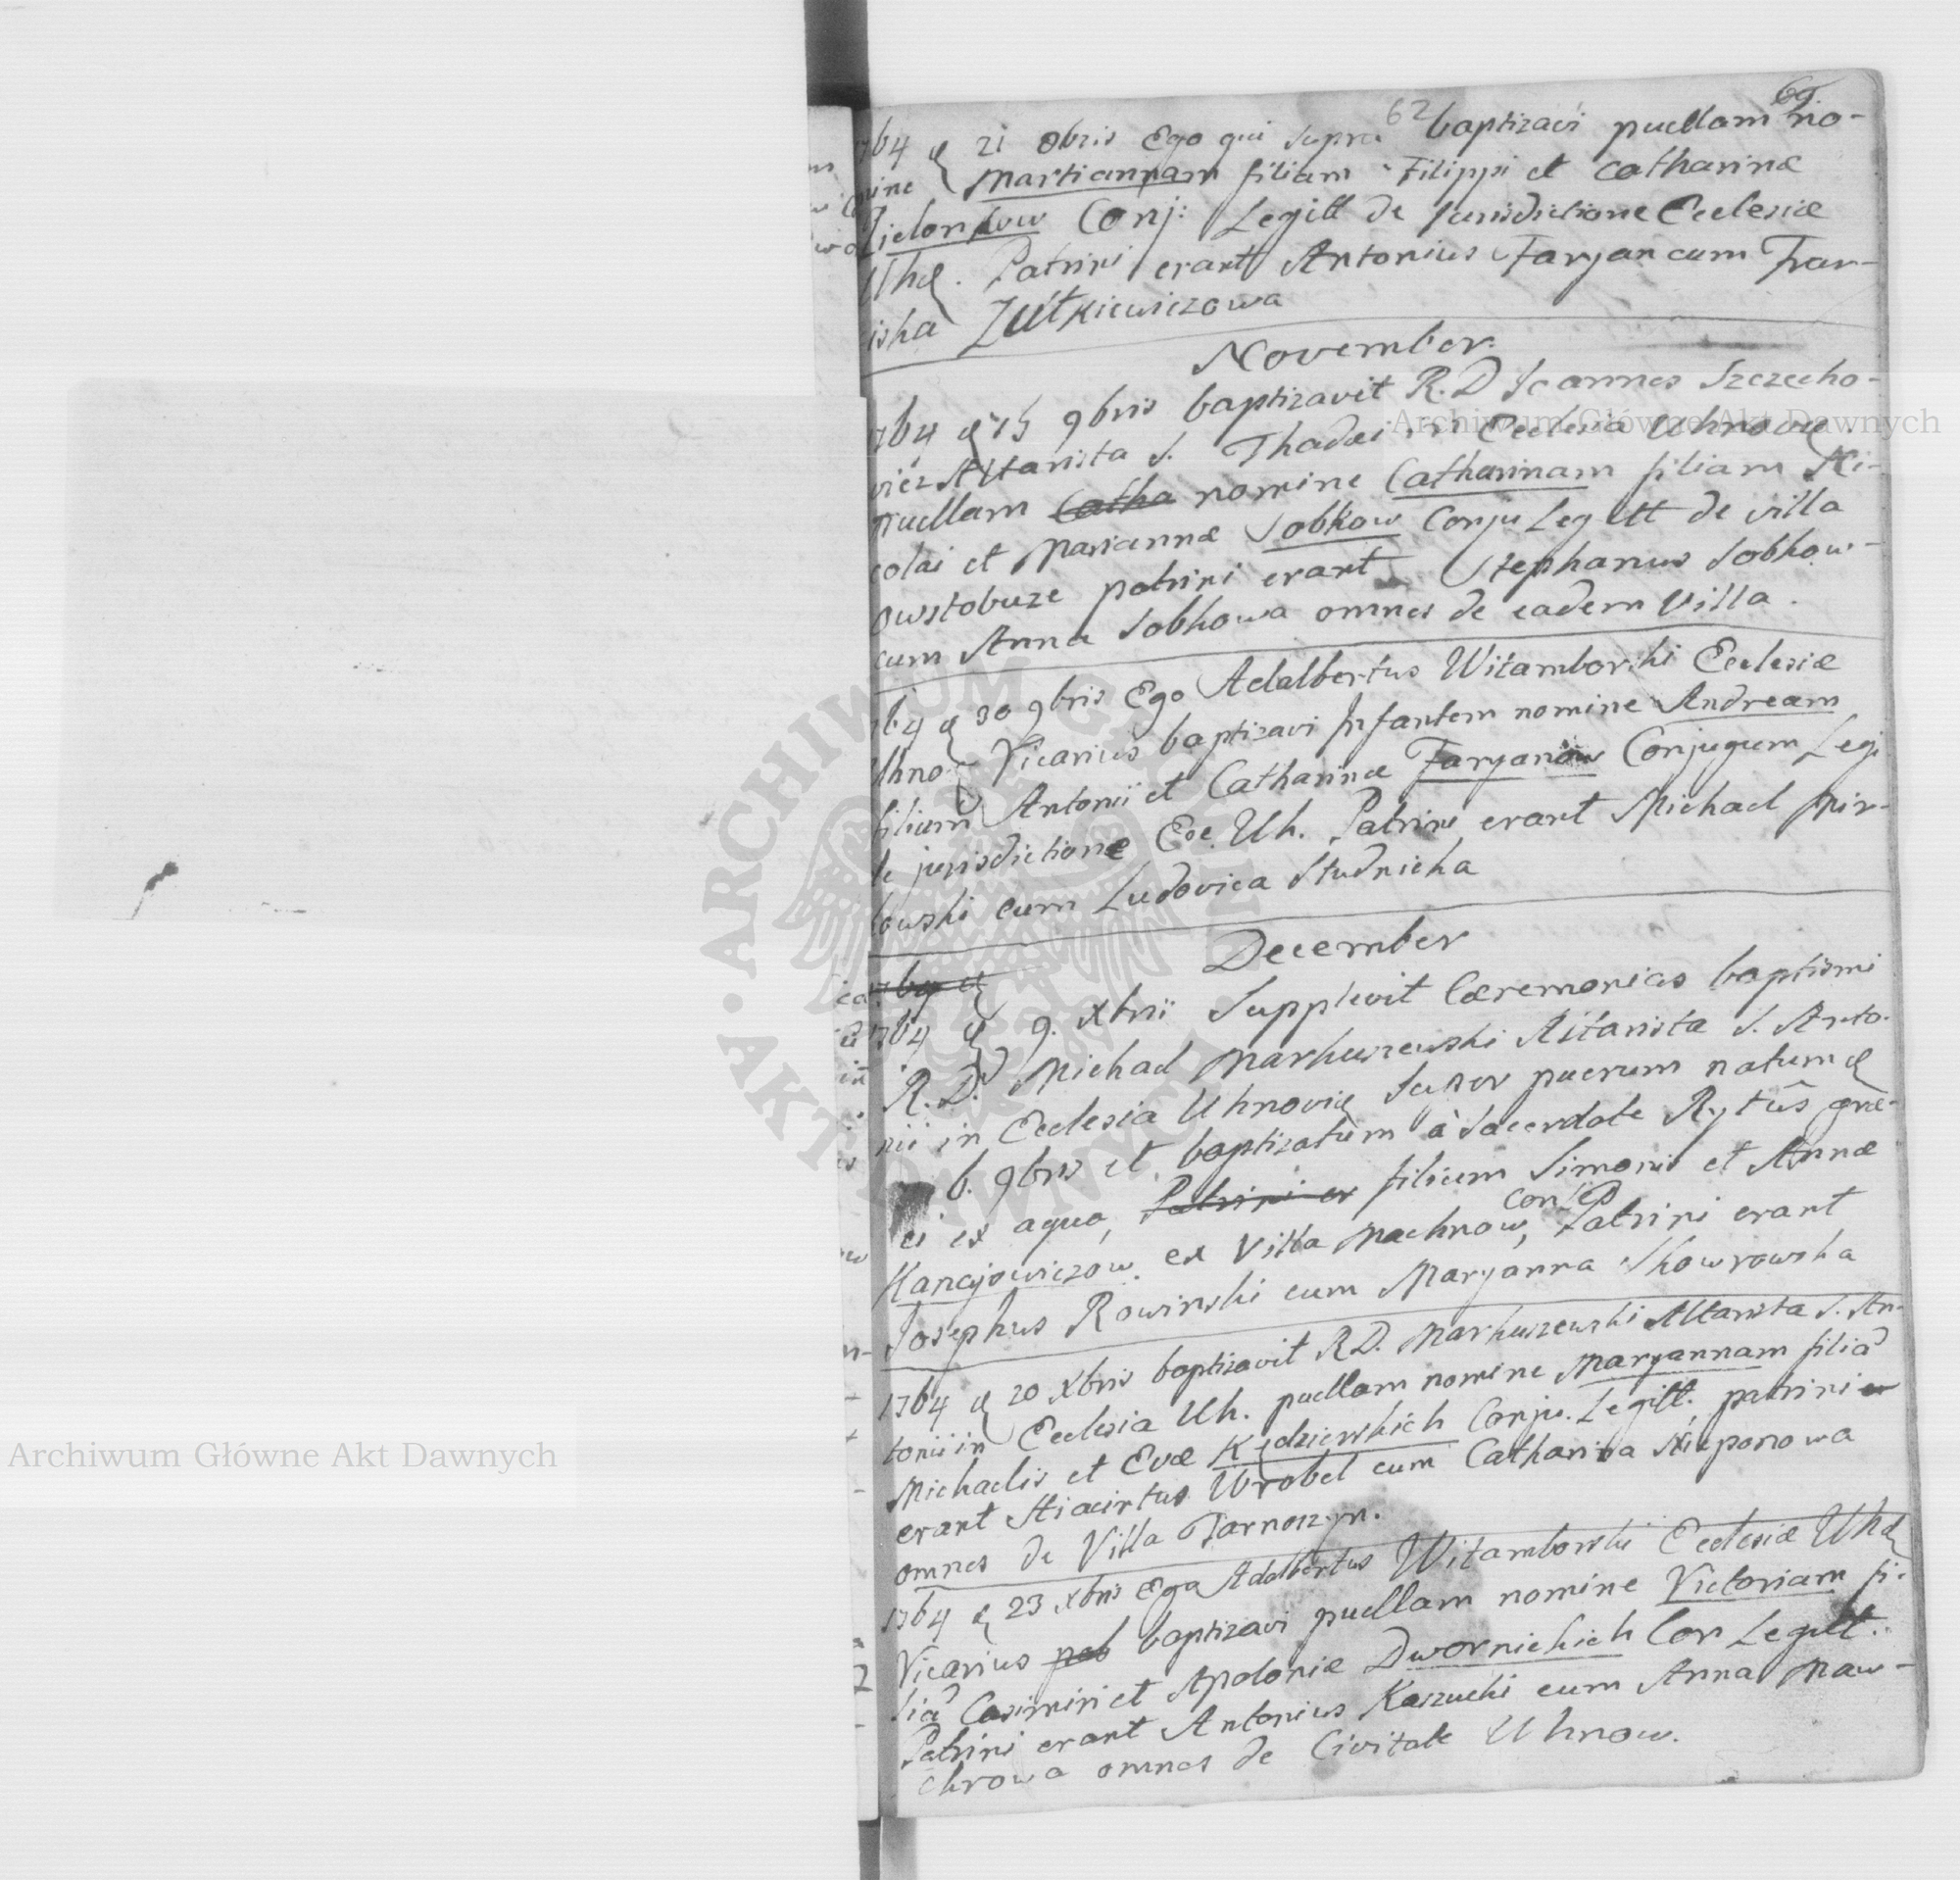 62 69.
1764 d 21 8bris Ego qui supra baptizavi puellam no-
mine Martiannam filiam Filippi et Catharinæ
Zielonkow Conj: Legitt de Jurisdictione Ecclesiæ
Uhd. Patrini erant Antonius Faryan cum Fran-
iska Zułkiewiczowa
November.
1764 d 15 9bris baptizavit R. D Joannes Szczecho-
wicz Altarista S. Thadæi in Ecclesia Uhnoviæ.
puellam Catha nomine Catharinam filiam Ni-
colai et Mariannæ Sobkow Conju Legitt de villa
owstobuze patrini erant Stephanus Sobkow-
cum Anna Sobkowa omnes de eadem villa.
1764 d 30 9bris Ego Adalbertus Witamborski Ecclesiæ
Uhno Vicarius baptizavi Infantem nomine Andream
filium Antonii et Catharinæ Faryanow Conjugum Legi
de jurisdictione Ecc. Uh. Patrini erant Michael Mir-
kowski cum Ludovica Studnicka
December
1764 d
1764 d 9. Xbrii Supplevit Cæremonias baptismi
R. D. Michael Markuszewski Altarista S. Anto-
nii in Ecclesia Uhnoviæ super puerum natum d
6. 9bris et baptizatum à Sacerdote Rytûs græ-
ci ex aqua, Patrini er filium Simonis et Annæ
Kanajowiczow. ex Villa Machnow, Conj Patrini erant
Josephus Rowinski cum Maryanna Skowrowska
1764 d 20 Xbris baptizavit R D. Markuszewski Altarista S. An-
tonii in Ecclesia Uh. puellam nomine Maryannam filiã
Michaelis et Evæ Kędzierskich Conju. Legitt. patrini er
erant Hiacintus Wrobel cum Catharina Szieponowa
omnes de Villa Tarnoszyn.
1764 d 23 Xbris Ego Adalbertus Witamborski Ecclesiæ Uhd
Vicarius pab baptizavi puellam nomine Victoriam fi-
liã Casimiri et Apoloniæ Dwornickich Con Legitt.
Patrini erant Antonius Kaszucki cum Anna Maw-
chrowa omnes de Civitate Uhnow.
Archiwum Główne Akt Dawnych
Archiwum Główne Akt Dawnych
ARCHIWUM GŁÓWNE
AKT DAWNYCH